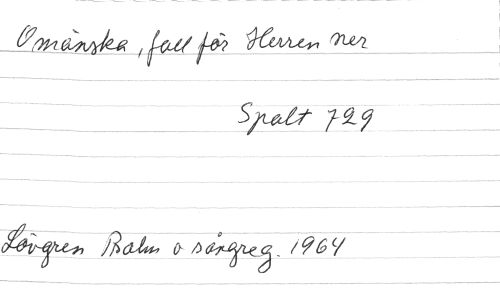 O människa, fall för Herren ner
Spalt 729
Lövgren Psalm o sångreg. 1964